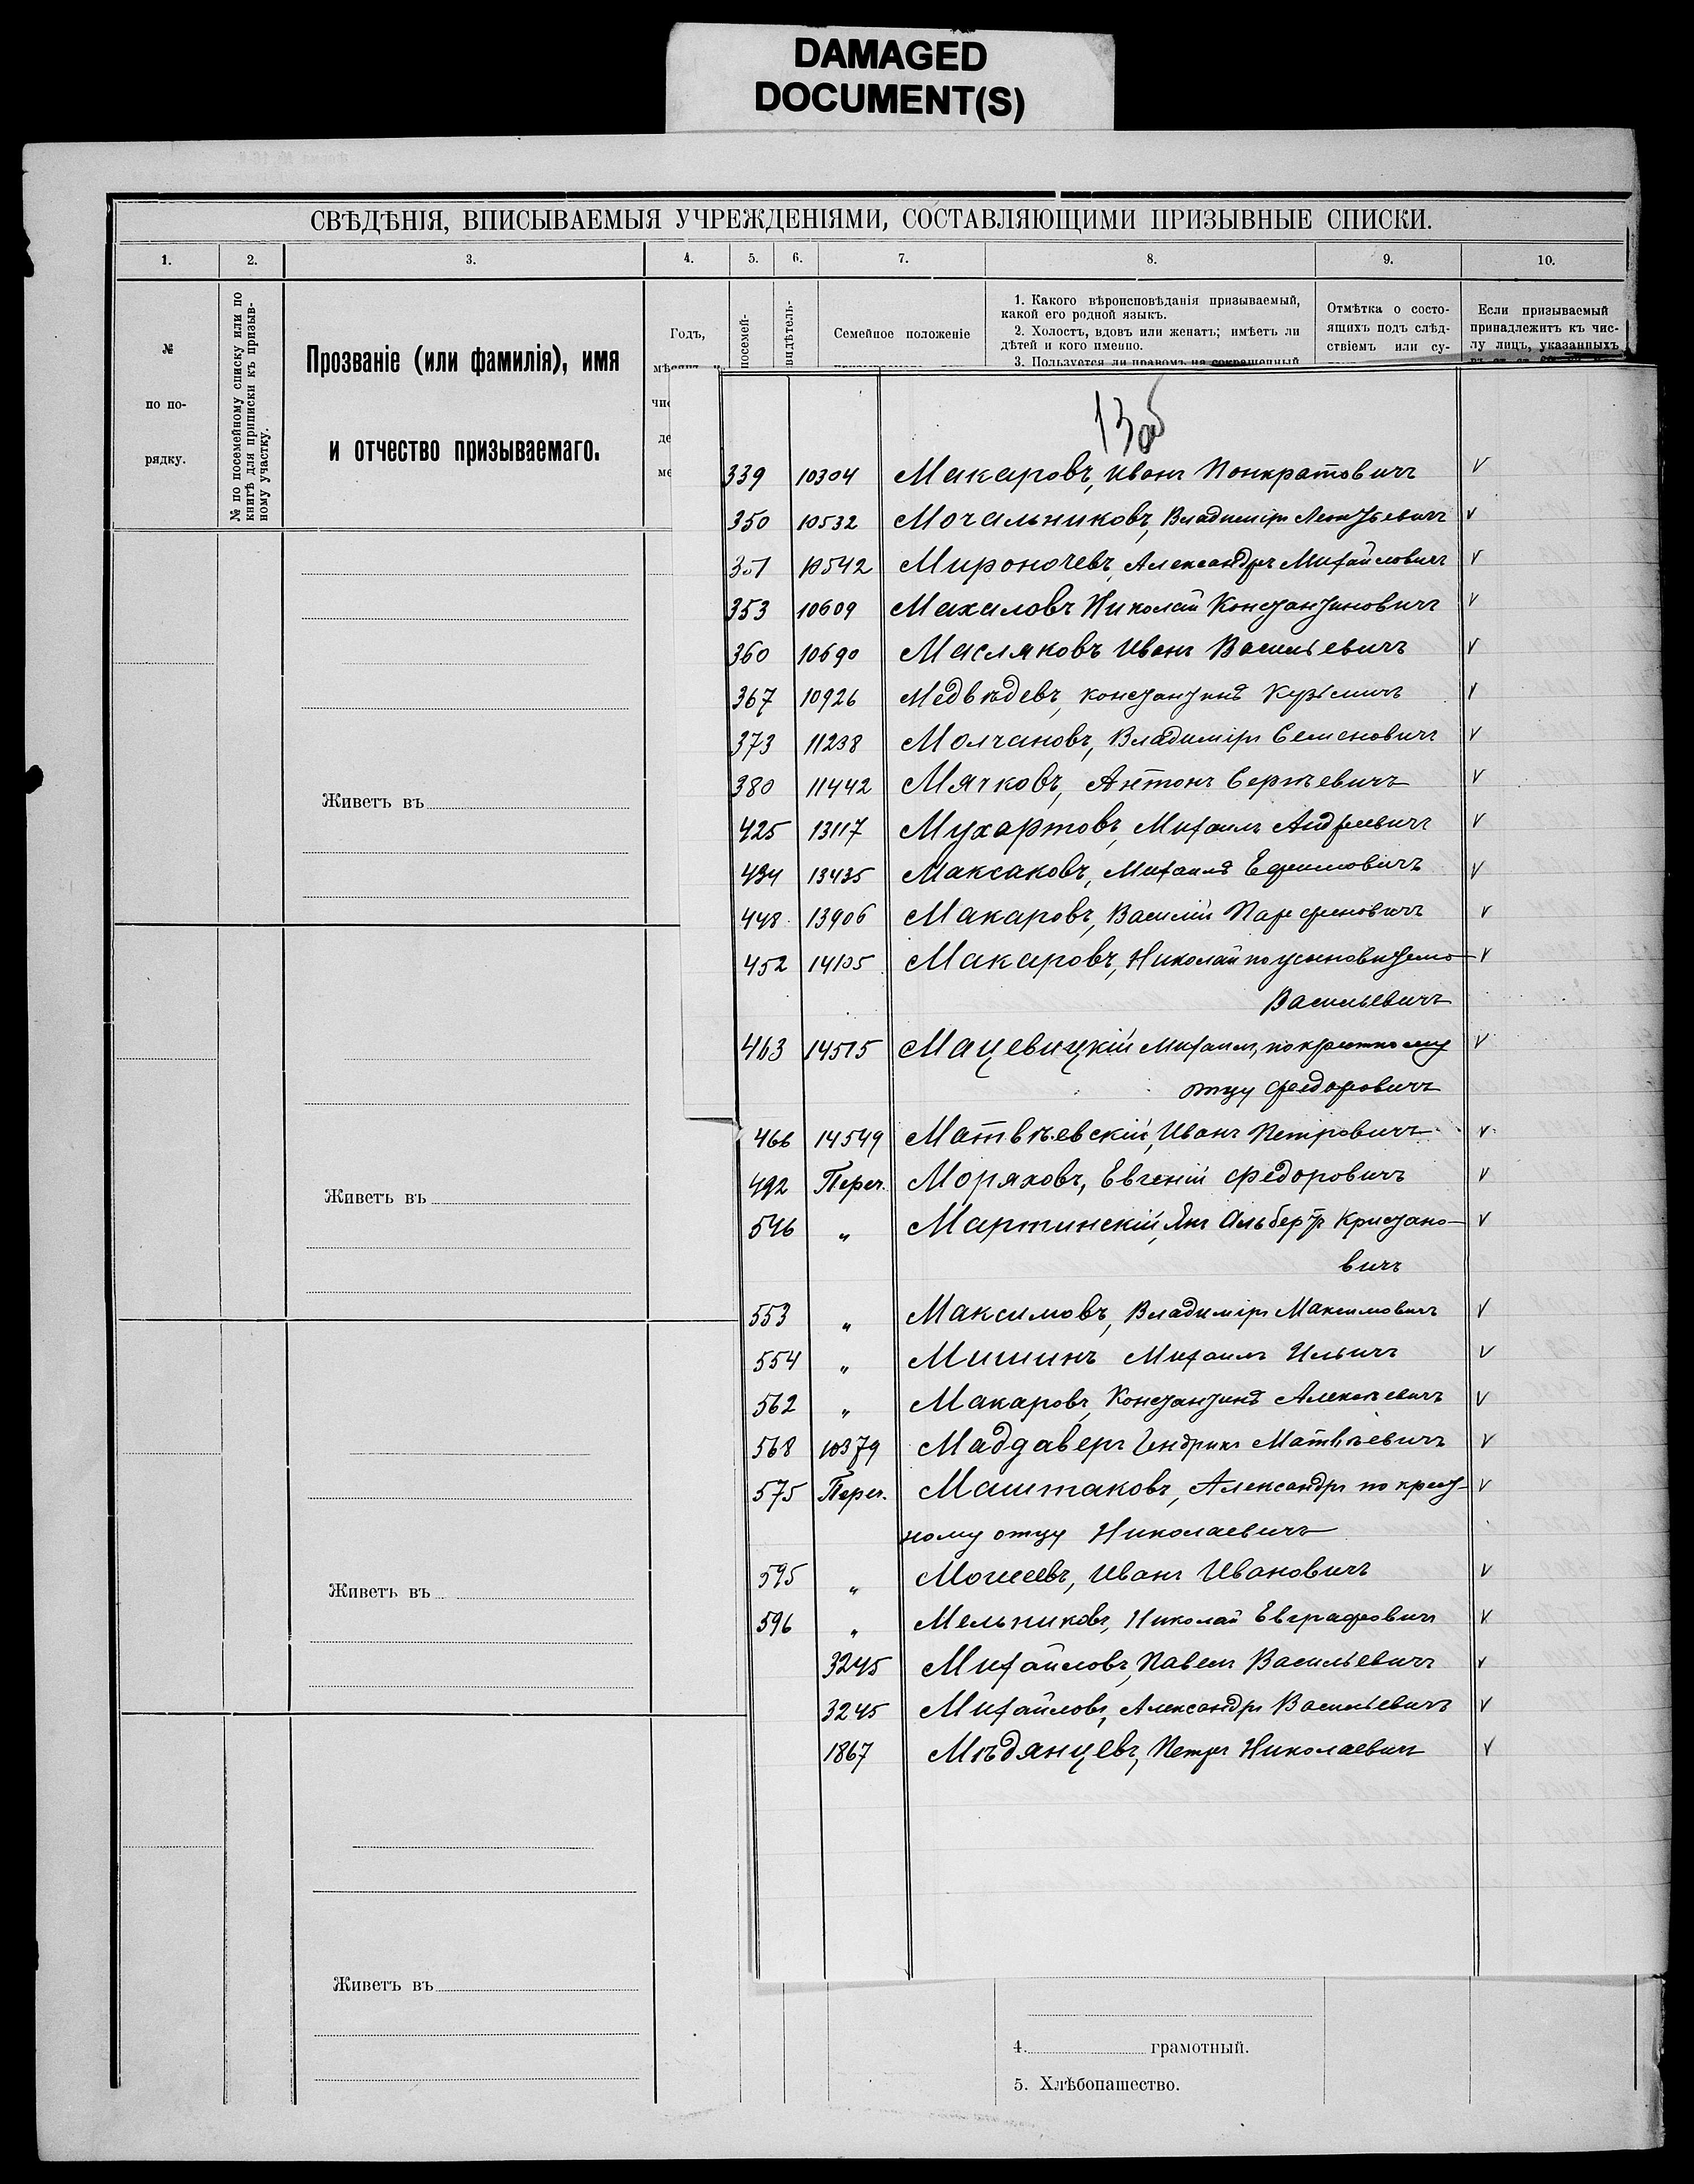 DAMAGED
DOCUMENT(S)
СВѢДѢНІЯ, ВПИСЫВАЕМЫЯ УЧРЕЖДЕНІЯМИ, СОСТАВЛЯЮЩИМИ ПРИЗЫВНЫЕ СПИСКИ.
1. 2. 3. 4. 5. 6. 7. 8. 9. 10.
№
по по-
рядку.
№ по посемейному списку или по
книгѣ для приписки къ призыв-
ному участку.
Прозваніе (или фамилія), имя
и отчество призываемаго.
Годъ,
посемей-
видѣтель-
Семейное положеніе
1. Какого вѣроисповѣданія призываемый,
какой его родной языкъ.
2. Холостъ, вдовъ или женатъ; имѣетъ ли
дѣтей и кого именно.
3. Пользуется ли правомъ на сокращенный
Отмѣтка о состо-
ящихъ подъ слѣд-
ствіемъ или су-
Если призываемый
принадлежитъ къ чис-
лу лицъ, указанныхъ
13 об
339 10304 Макаровъ, Иванъ Понкратовичъ v
350 10532 Мочальниковъ, Владиміръ Леонтьевичъ v
351 10542 Мироночевъ, Александръ Михайловичъ v
353 10609 Махаловъ Николай Константиновичъ v
360 10690 Масляковъ Иванъ Васильевичъ v
367 10926 Медвѣдевъ, Константинъ Кузьмичъ v
373 11238 Молчановъ, Владиміръ Семеновичъ v
380 11442 Мячковъ, Антонъ Сергѣевичъ v
425 13117 Мухартовъ, Михаилъ Андреевичъ v
434 13435 Максаковъ, Михаилъ Ефимовичъ v
448 13906 Макаровъ, Василій Парфеновичъ v
452 14105 Макаровъ, Николай по усыновителю v
Васильевичъ
463 14515 Мацевицкій Михаилъ, по крестному v
отцу Федоровичъ
466 14549 Матвѣевскій, Иванъ Петровичъ v
492 Переч. Моряховъ, Евгеній Федоровичъ v
546 „ Мартинскій, Янъ Альбертъ Кристано- v
вичъ
553 „ Максимовъ, Владиміръ Максимовичъ v
554 „ Мишинъ Михаилъ Ильичъ v
562 „ Макаровъ, Константинъ Алексѣевичъ v
568 10379 Маддаверъ Гендрикъ Матвѣевичъ v
575 Переч. Маштаковъ, Александръ по крест- v
ному отцу Николаевичъ
595 „ Моисеевъ, Иванъ Ивановичъ v
596 „ Мельниковъ, Николай Евграфовичъ v
3245 Михайловъ, Павелъ Васильевичъ v
3245 Михайловъ, Александръ Васильевичъ v
1867 Мѣдянцевъ, Петръ Николаевичъ v
Живетъ въ
Живетъ въ
Живетъ въ
Живетъ въ
4. грамотный.
5. Хлѣбопашество.